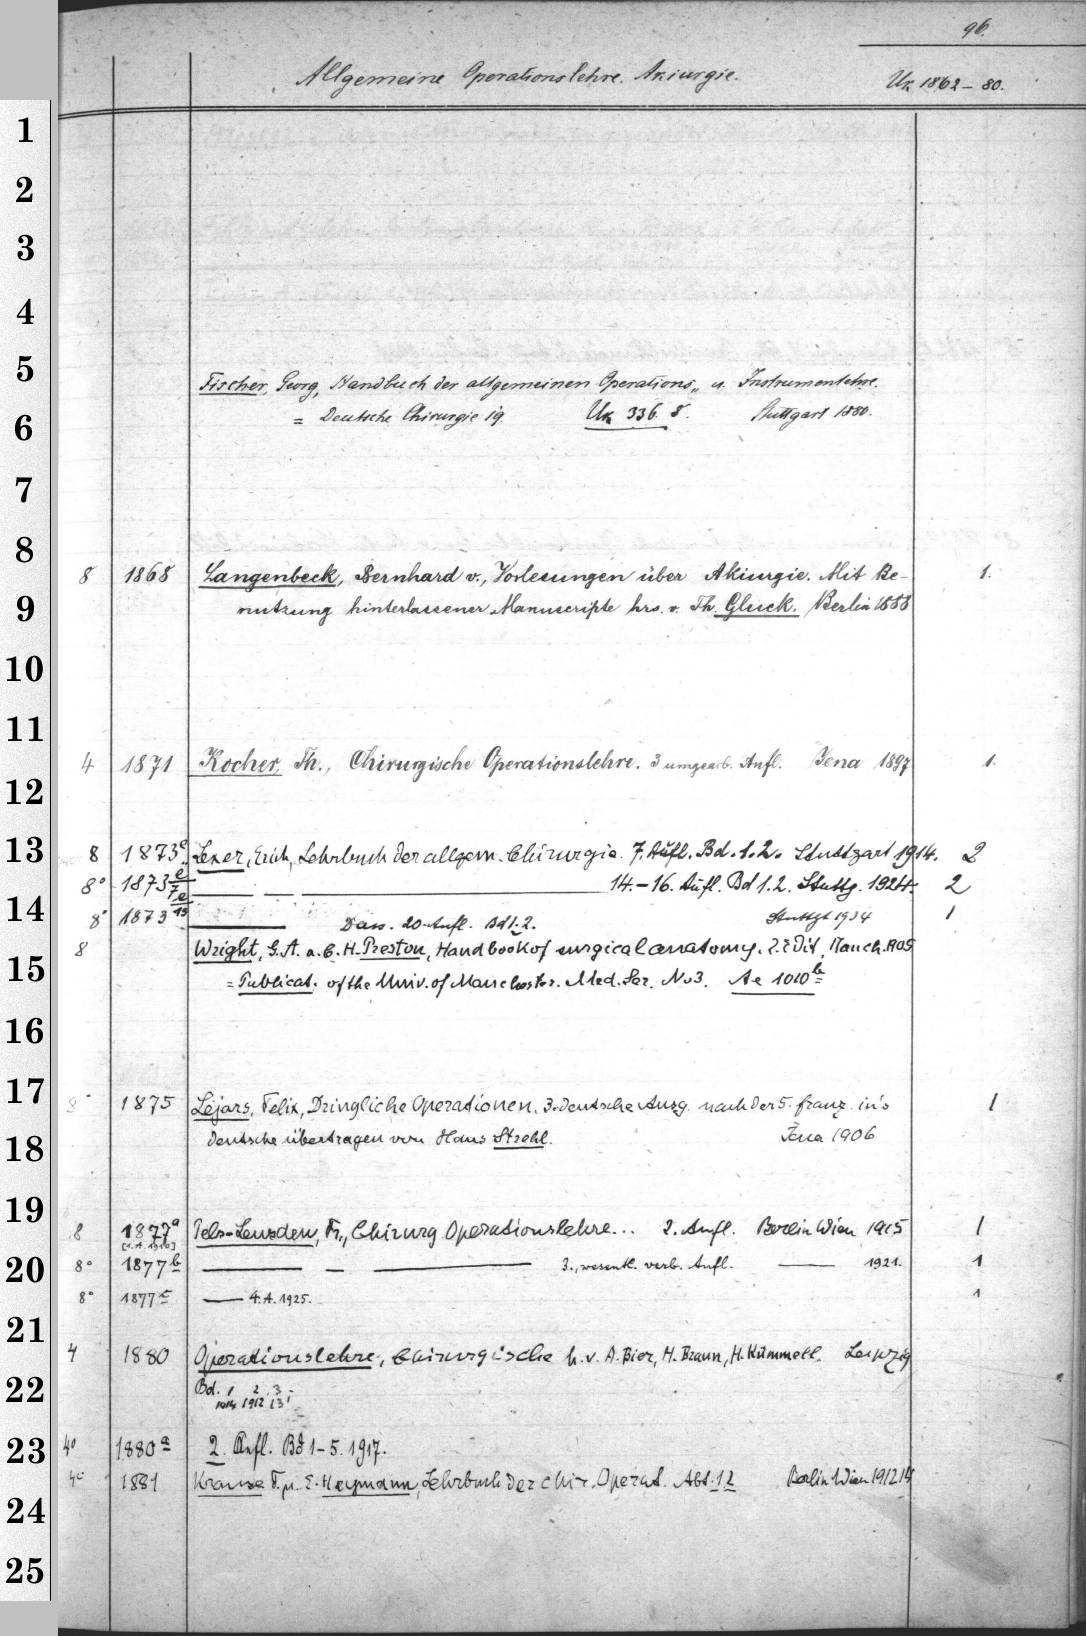 96.
Allgemeine Operationslehre. Akiurgie. Uk 1862-80.
1
2
3
4
5
Fischer, Georg, Handbuch der allgemeinen Operations„ u. Instrumentlehre.
= Deutsche Chirurgie 19. Uk 336. 8. Stuttgart 1880.
6
7
8
8 1868 Langenbeck, Bernhard v., Vorlesungen über Akiurgie. Mit Be- 1.
9 nutzung hinterlassener Manuscripte hrs. v. Th. Gluck. Berlin 1888
10
11
4 1871 Kocher, Th., Chirurgische Operationslehre. 3 umgearb. Aufl. Jena 1897 1.
12
13 8 1873e Lexer, Erich, Lehrbuch der allgem. Chirurgie. 7. Aufl. Bd. 1.2. Stuttgart 1914. 2
8° 1873 e/7e — — — 14.-16. Aufl. Bd 1.2. Stuttg. 1924. 2
14 8° 1873 — Dass. 20. Aufl. Bd 1.2. Stuttgt 1934 1
8 Wright, G. A. a. C. H. Preston, Handbook of surgical anatomy. 2. Edit, Manch. 1905
15 = Publicat. of the Univ. of Manchester. Med. Ser. No 3. Ae 1010b
16
17 8° 1875 Lejars, Felix, Dringliche Operationen. 3. deutsche Ausg. nach der 5. franz. in's 1
18 deutsche übertragen von Hans Strehl. Jena 1906
19
8 1877a Pels-Leusden, Fr., Chirurg. Operationslehre... 2. Aufl. Berlin Wien 1915 1
[1.A. 1910]
20 8° 1877b — — — 3., wesentl. verb. Aufl. — 1921. 1
8° 1877c — 4. A. 1925. 1
21
4 1880 Operationslehre, Chirurgische h. v. A. Bier, H. Braun, H. Kümmell. Leipzig
22 Bd. 1 2 3
1914 1912 13
23 4° 1880a 2. Aufl. Bd 1-5. 1917.
4° 1881 Krause F. u. E. Heymann, Lehrbuch der chir. Operat. Abt. 1.2 Berlin Wien 1912 14
24
25